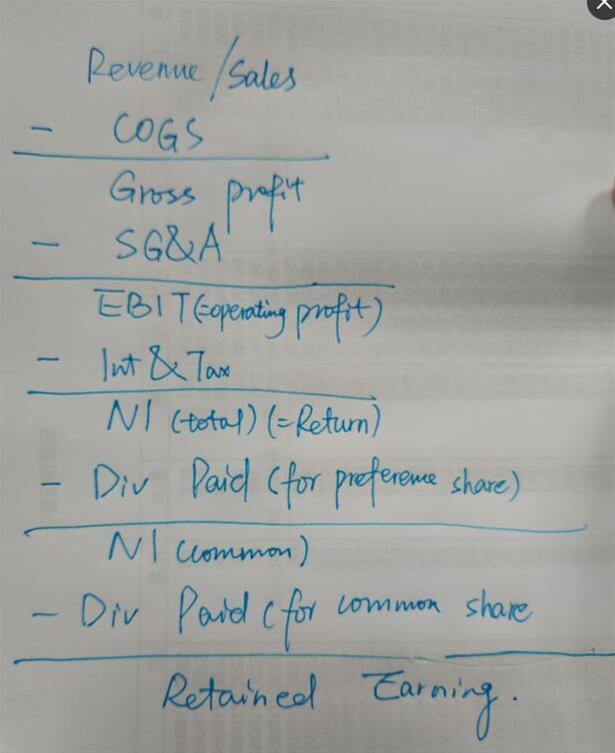 Revenue/Sales
- COGS
Gross profit
- SG&A
EBIT(=operating profit)
- Int & Tax
NI (total) (=Return)
- Div Paid (for preference share)
NI (common)
- Div Paid (for common share
Retained Earning.